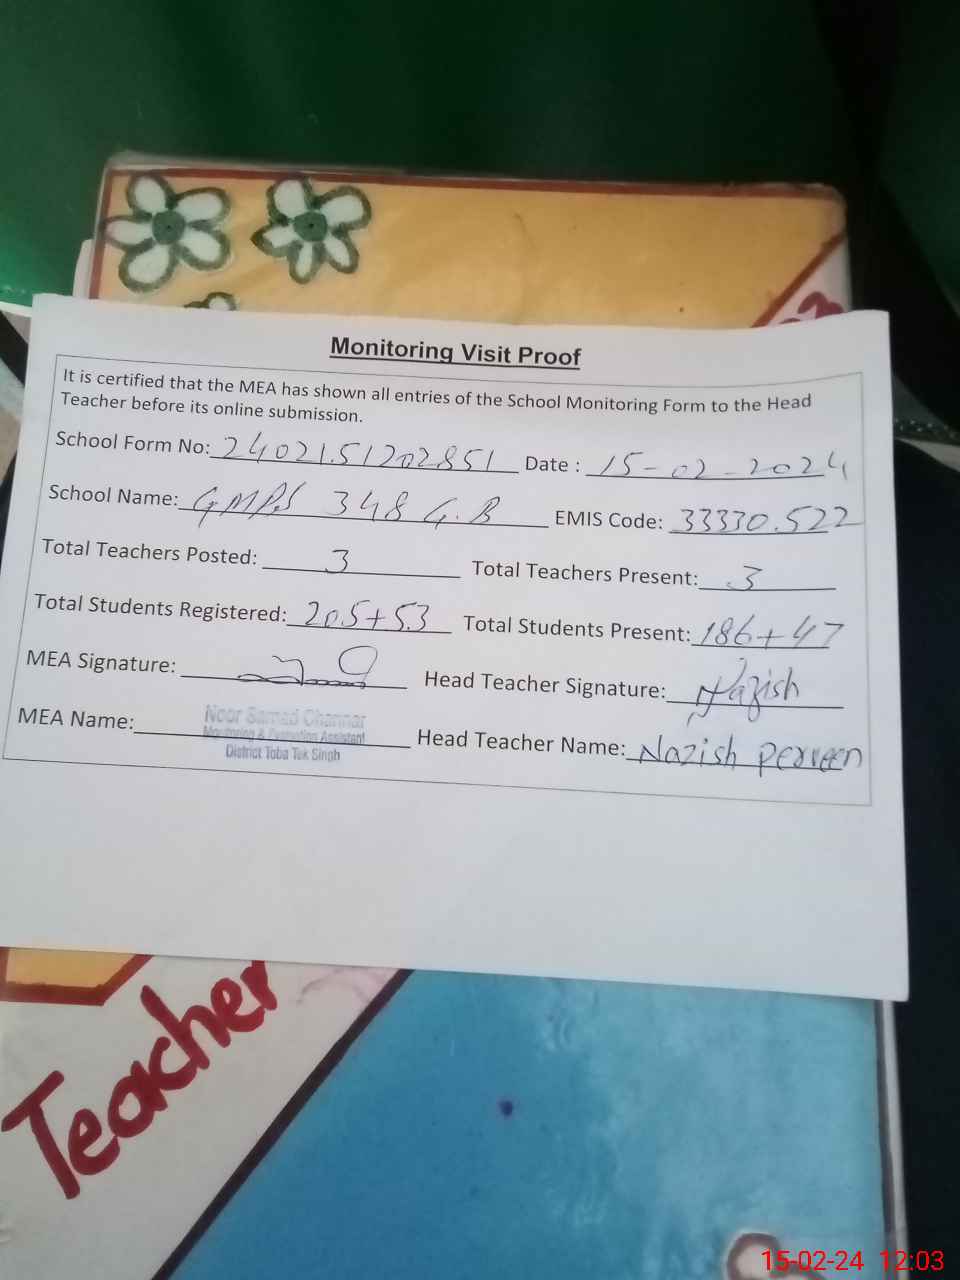 Monitoring Visit Proof
It is certified that the MEA has shown all entries of the School Monitoring Form to the Head
Teacher before its online submission.
School Form No: 2402151202851 Date : 15-02-2024
School Name: GMPS 348 G.B EMIS Code: 33330522
Total Teachers Posted: 3 Total Teachers Present: 3
Total Students Registered: 205+53 Total Students Present: 186+47
MEA Signature: Head Teacher Signature: Nazish
MEA Name: Noor Samad Channar Head Teacher Name: Nazish Perveen
Monitoring & Evaluation Assistant
District Toba Tek Singh
Teacher
15-02-24 12:03